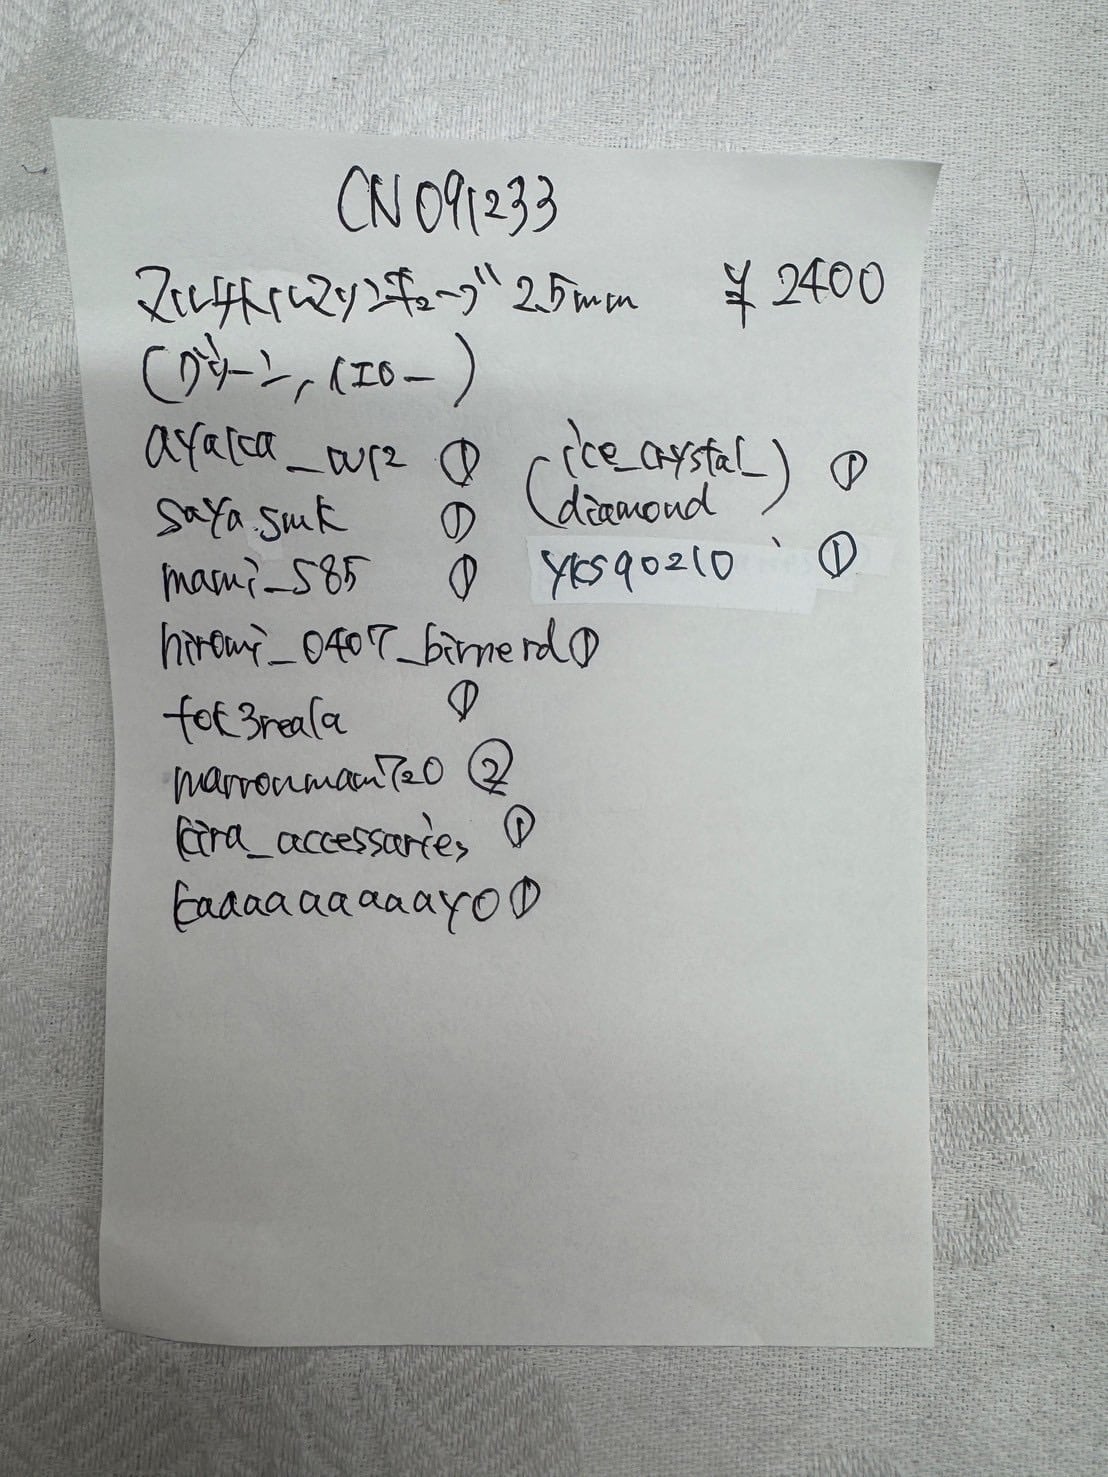 CN091233
マルチトルマリンチューブ 2.5mm ¥2400
(グリーン, イエロー)
ayaka_wr2 ①
saya.smk ①
mami_585 ①
hiromi_0407_birnerd ①
tok3reala ①
marronmam720 ②
kira_accessaries ①
kaaaaaaaaayo ①
(ice_crystal_
diamond) ①
yks90210 ①